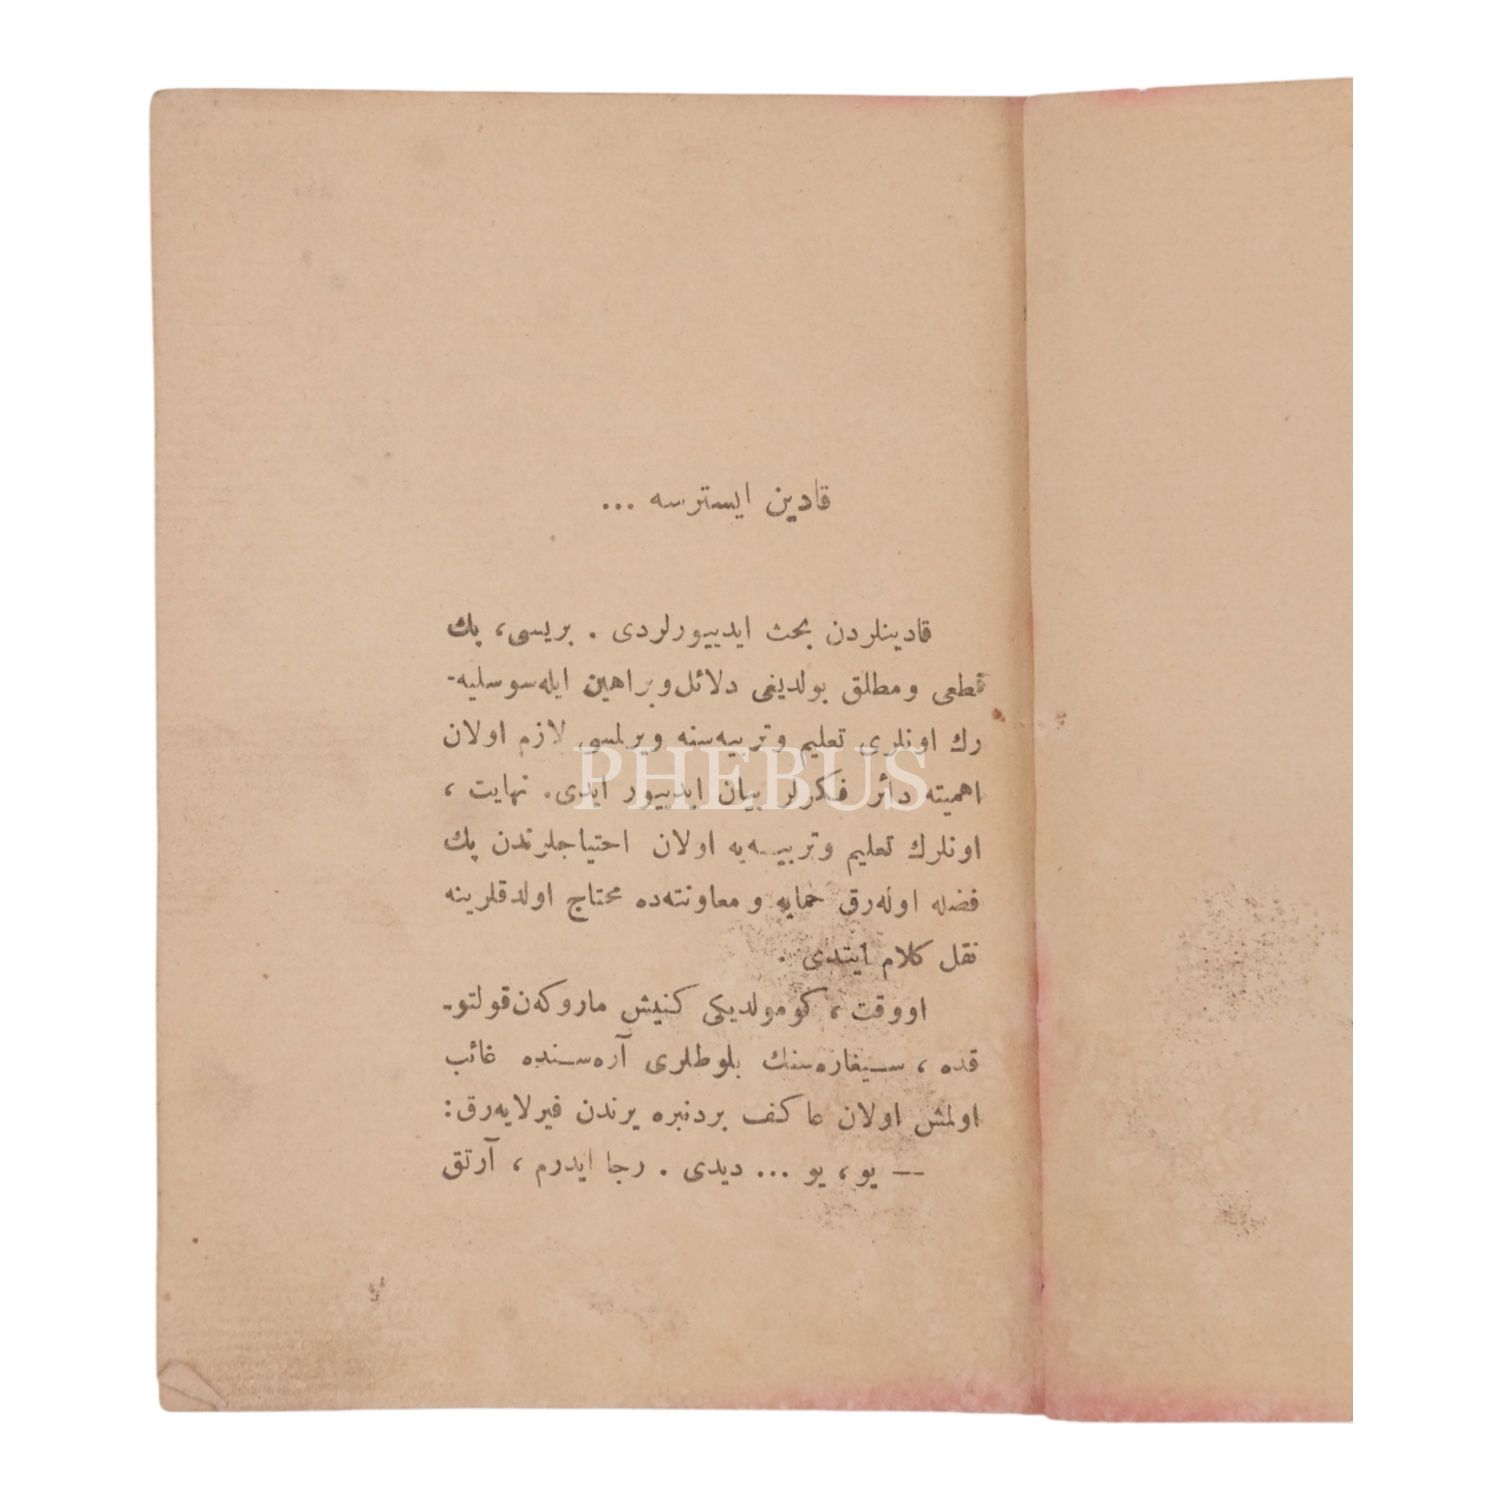 قادین ایسترسه ...
قادینلردن بحث ایدییورلردی . بریسی، پك
قطعی و مطلق بولدیغی دلائل وبراهین ایله سوسلیه-
رك اونلری تعلیم وتربیه‌سنه ویرلمسی لازم اولان
اهمیته دائر فكرلر بیان ایدییور ایدی. نهایت ،
اونلرك تعلیم وتربیــه‌یه اولان احتیاجلرندن پك
فضله اوله‌رق حمایه و معاونته‌ده محتاج اولدقلرینه
نقل كلام ایتدی .
اووقت ، كومولدیكی كنیش ماروكه‌ن قولتو-
قده ، ســیغاره‌سنك بلوطلری آره‌ســنده غائب
اولمش اولان عاكف بردنبره یرندن فیرلایه‌رق :
— یو ، یو ... دیدی . رجا ایدرم ، آرتق
PHEBUS